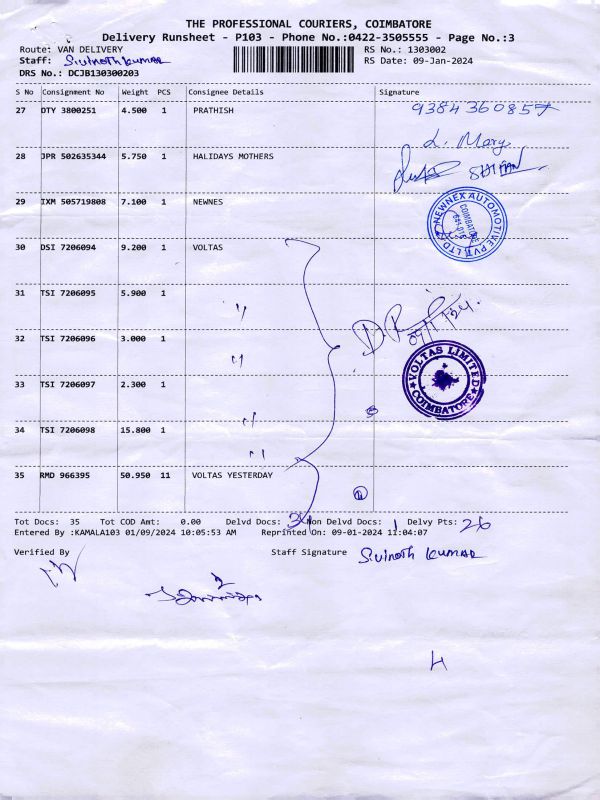 THE PROFESSIONAL COURIERS, COIMBATORE
Delivery Runsheet - P103 - Phone No.:0422-3505555 - Page No.:3
Route: VAN DELIVERY RS No.: 1303002
Staff: Sivinoth kumar RS Date: 09-Jan-2024
DRS No.: DCJB130300203
S No Consignment No Weight PCS Consignee Details Signature
27 DTY 3800251 4.500 1 PRATHISH 9384360857
L. Mary
28 JPR 502635344 5.750 1 HALIDAYS MOTHERS
29 IXM 505719808 7.100 1 NEWNES
NEWNEX AUTOMOTIVE PVT LTD
COIMBATORE
30 DSI 7206094 9.200 1 VOLTAS
31 TSI 7206095 5.900 1 "
32 TSI 7206096 3.000 1 "
VOLTAS LIMITED
COIMBATORE
33 TSI 7206097 2.300 1 "
34 TSI 7206098 15.800 1 "
35 RMD 966395 50.950 11 VOLTAS YESTERDAY
Tot Docs: 35 Tot COD Amt: 0.00 Delvd Docs: 34 Non Delvd Docs: 1 Delvy Pts: 26
Entered By :KAMALA103 01/09/2024 10:05:53 AM Reprinted On: 09-01-2024 11:04:07
Verified By Staff Signature Sivinoth kumar